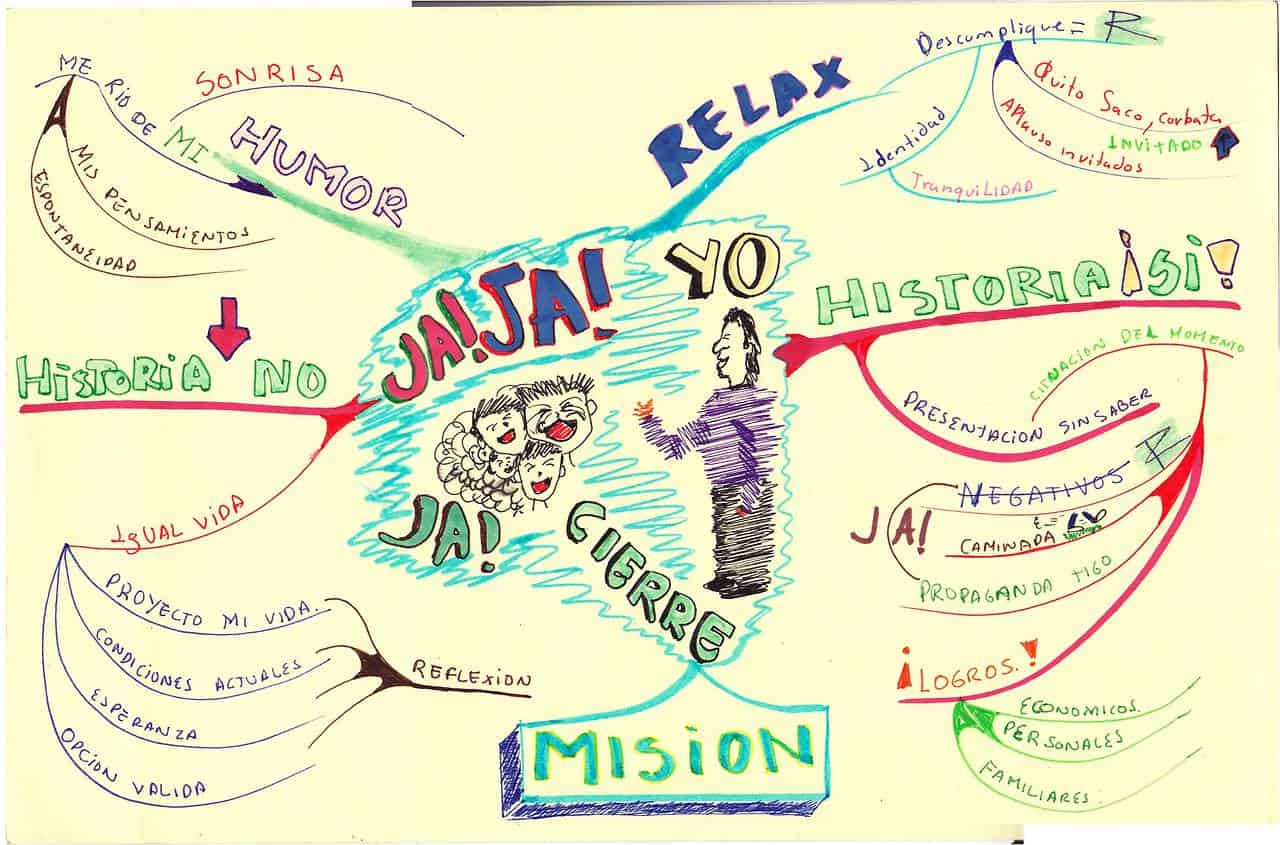 ME RIO DE MI
SONRISA
HUMOR
MIS PENSAMIENTOS
ESPONTANEIDAD
RELAX
Descumplique = R
Quito Saco, corbata
APlauso invitados
INVITADO
Identidad
TranquiLIDAD
JA! JA!
YO
JA!
CIERRE
HISTORIA ¡SI!
CITNACION DEL MOMENTO
PRESENTACION SIN SABER
NEGATIVOS R
JA!
CAMINADA
PROPAGANDA TIGO
¡LOGROS.!
ECONOMICOS.
PERSONALES
FAMILIARES.
HISTORIA NO
IGUAL VIDA
PROYECTO MI VIDA.
CONDICIONES ACTUALES
ESPERANZA
OPCION VALIDA
REFLEXION
MISION